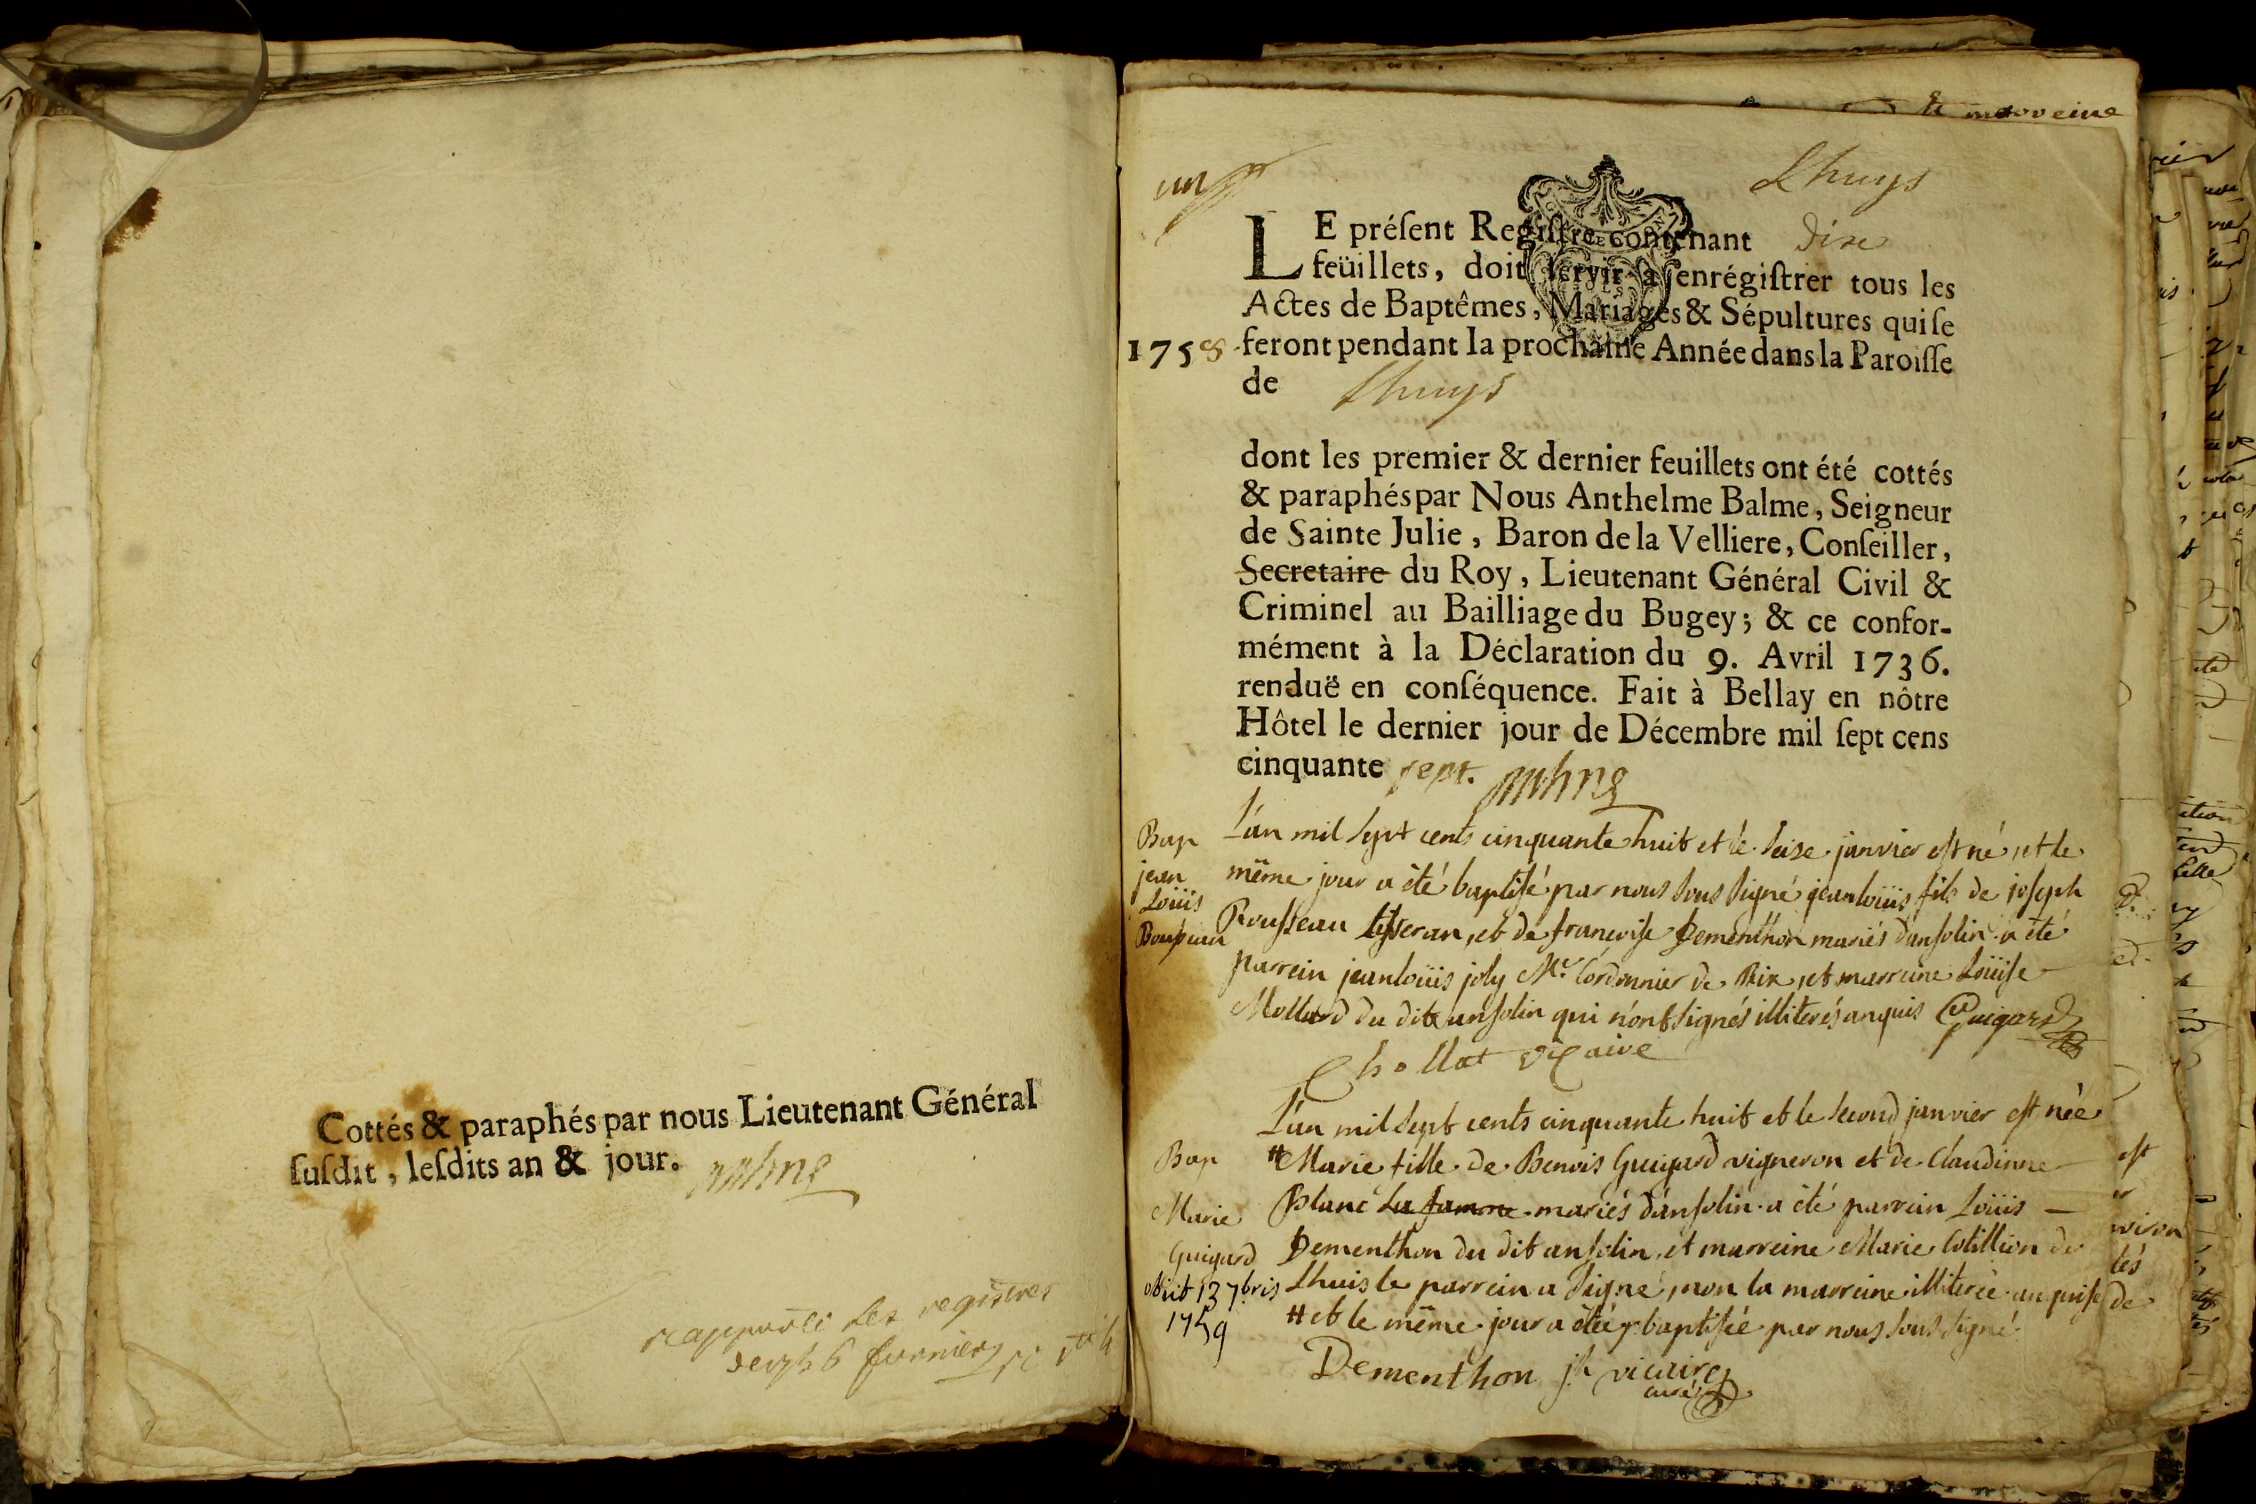 Cottés & paraphés par nous Lieutenant Général
ſuſdit, leſdits an & jour.
les registres
un
Lhuys
LE préſent Regiſtre contenant dixe
feüillets, doit ſervir à enrégiſtrer tous les
Actes de Baptêmes, Mariages & Sépultures qui ſe
1758 feront pendant la prochaine Année dans la Paroiſſe
de Lhuys
dont les premier & dernier feuillets ont été cottés
& paraphés par Nous Anthelme Balme, Seigneur
de Sainte Julie, Baron de la Velliere, Conſeiller,
Secretaire du Roy, Lieutenant Général Civil &
Criminel au Bailliage du Bugey; & ce confor-
mément à la Déclaration du 9. Avril 1736.
renduë en conſéquence. Fait à Bellay en nôtre
Hôtel le dernier jour de Décembre mil ſept cens
cinquante sept.
Bap
jean
Loüis
L'an mil sept cents cinquante huit et le seize janvier est né, et le
même jour a été baptisé par nous sous signé jeanloüis fils de joseph
Rousseau tisseran, et de francoise Dementhon mariés d'ansolin a été
parrein jeanloüis joly Me. Cordonnier de Rix, et marreine Loüise
Mollard du dit ansolin qui n'ont signés illiterés anquis Guigard
Chollat vicaire
Bap
Marie
Guigard
obiit 13 7bris
1759
L'an mil sept cents cinquante huit et le second janvier est née
# Marie fille de Benois Guigard vigneron et de Claudinne
Blanc sa famme mariés d'ansolin a été parrein Loüis
Dementhon du dit ansolin, et marreine Marie Cotillion de
Lhuis le parrein a signé, non la marreine illiterée anquise
# et le même jour a étée baptisée par nous sous signé
Dementhon jh vicaire
curé